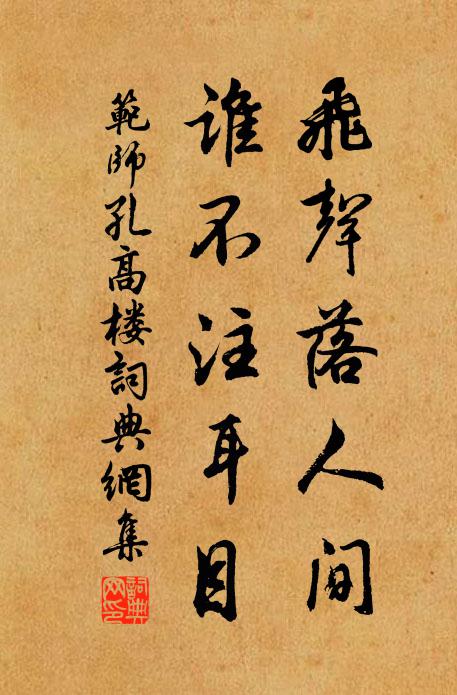 飛聲落人间
誰不注耳目
範師孔高楼詞典網集
詞典网印